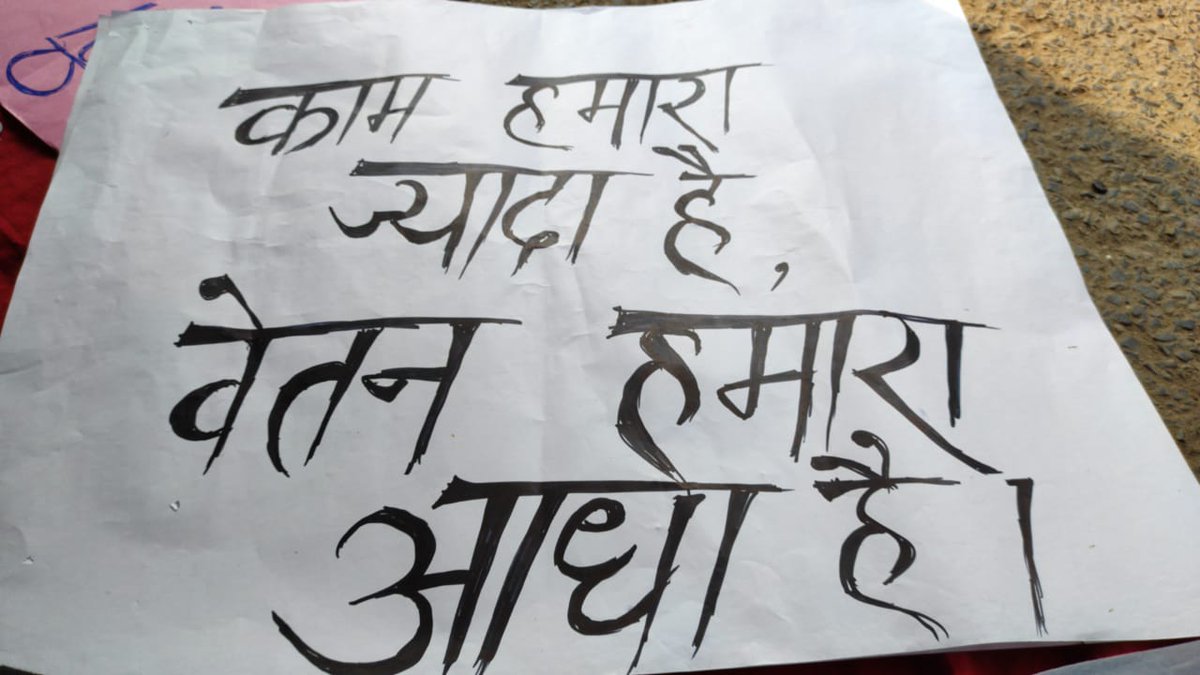 काम हमारा
ज्यादा है,
वेतन हमारा
आधा है।